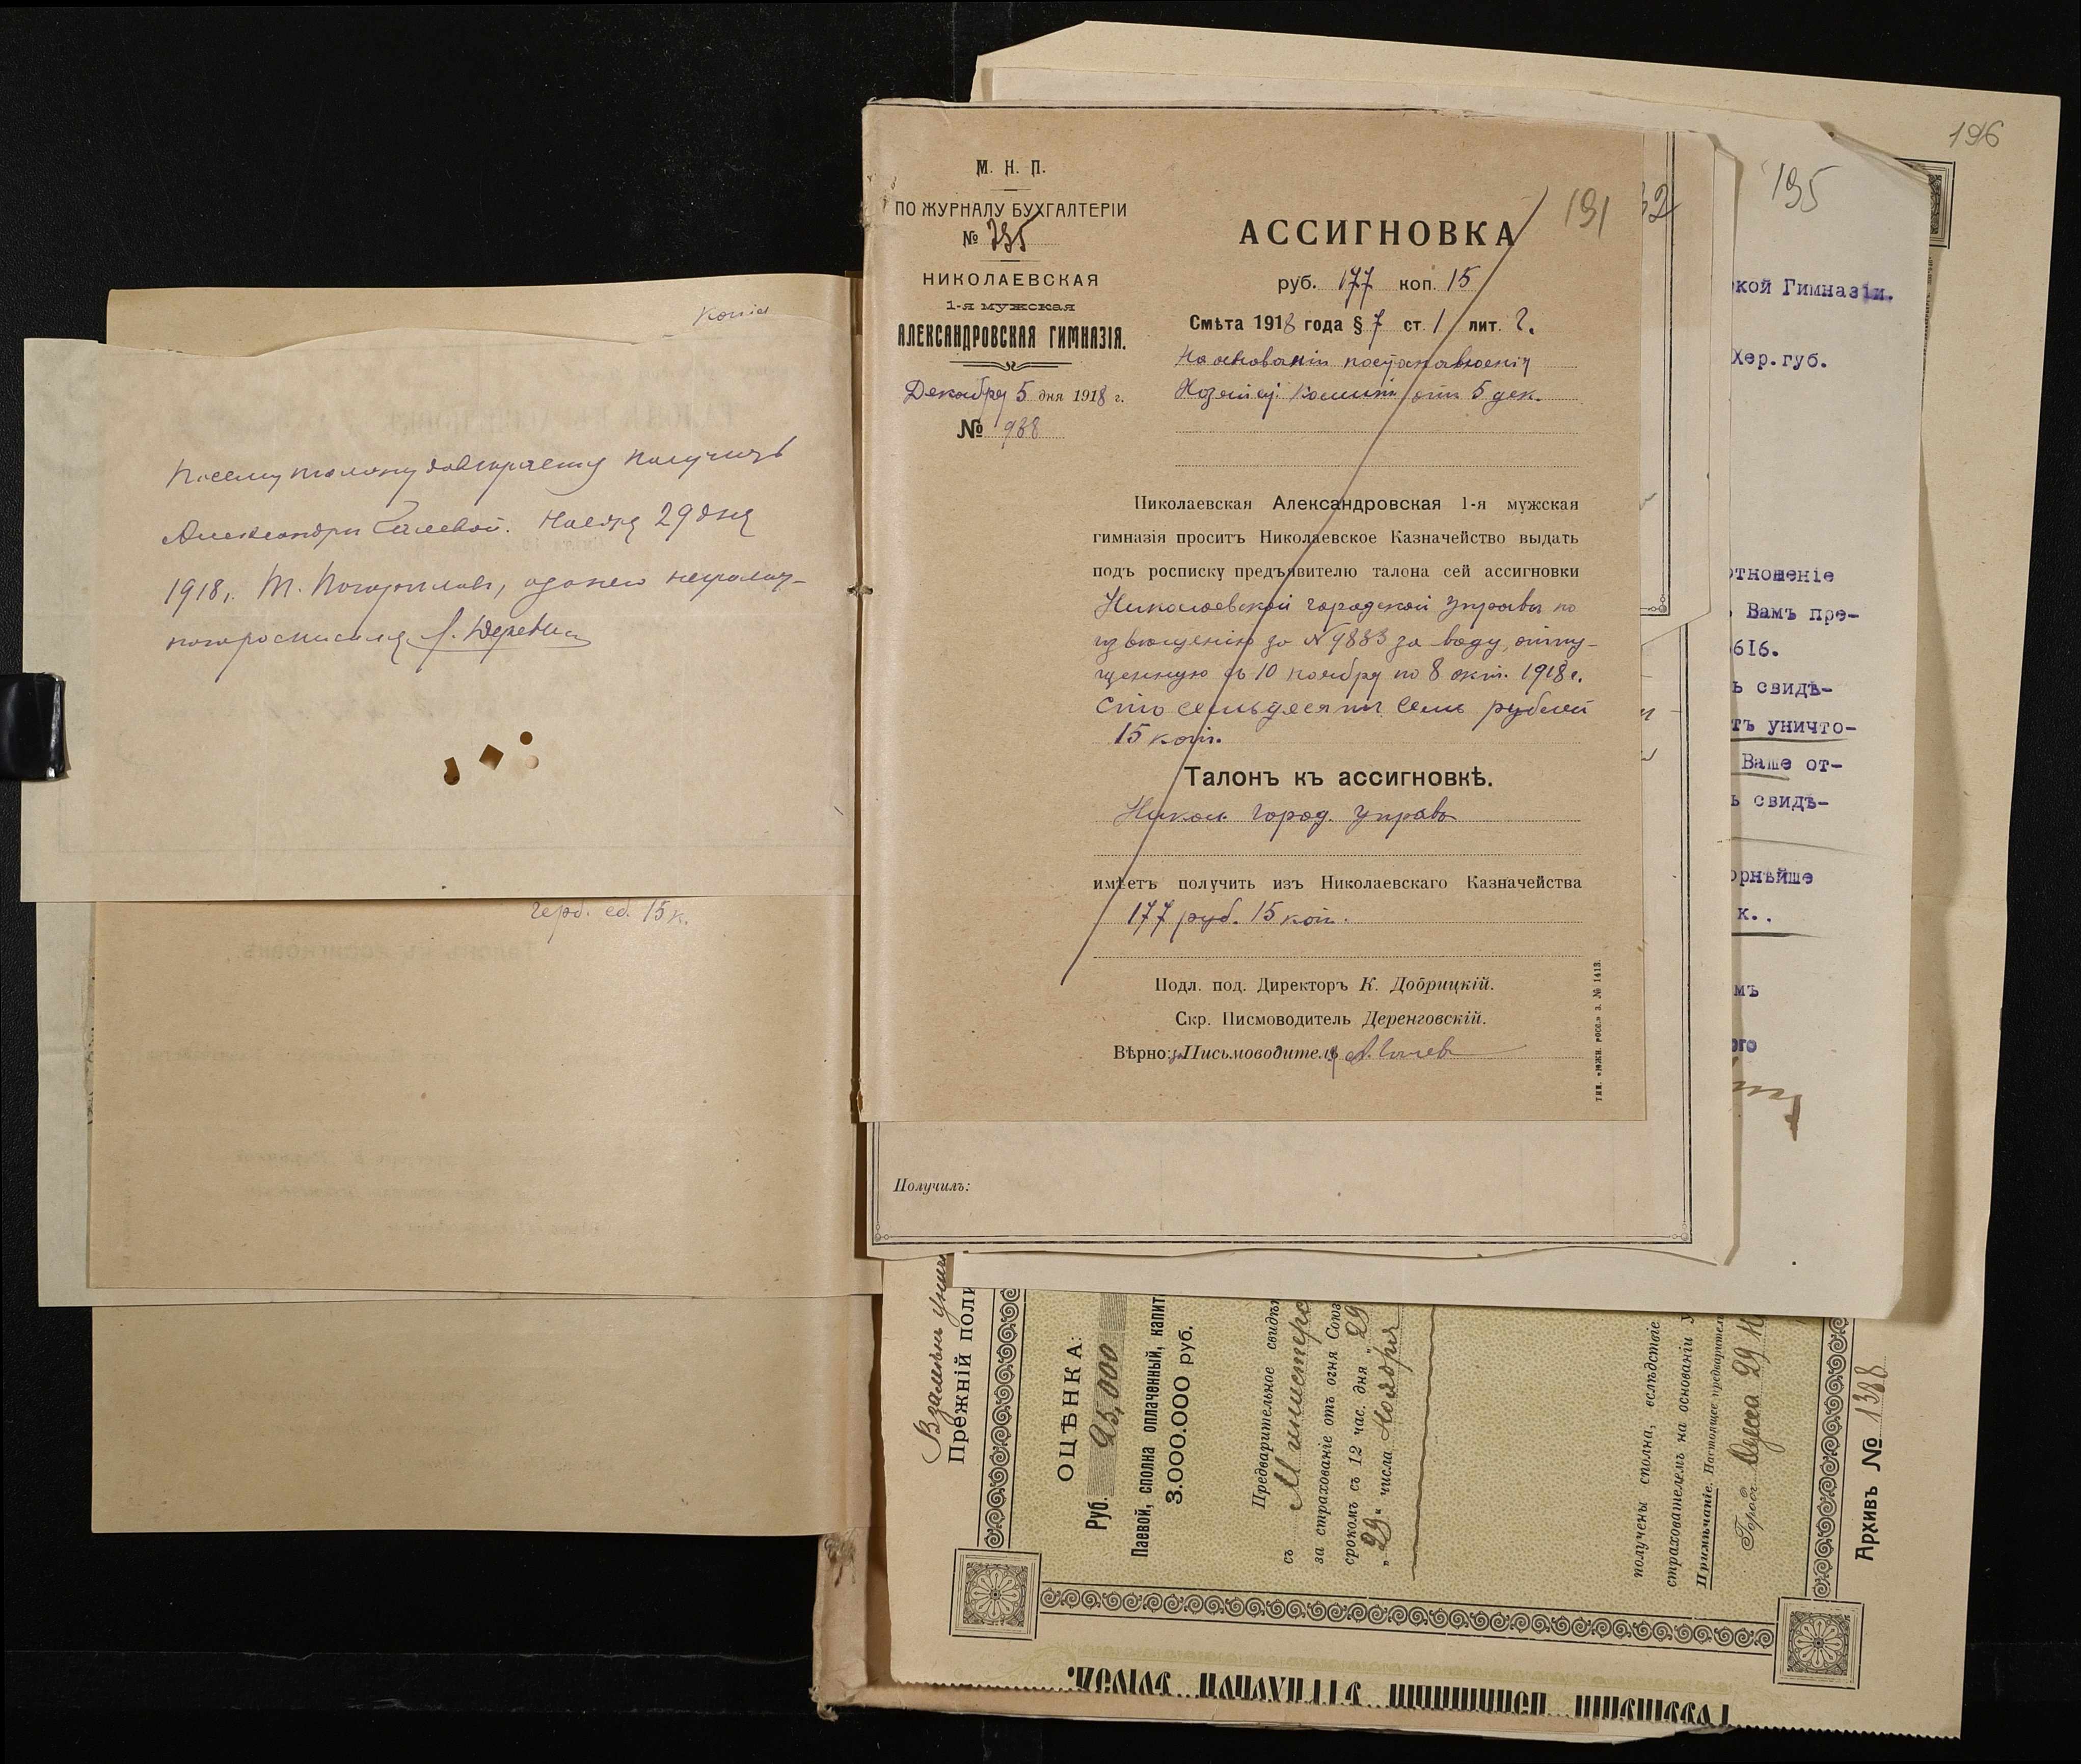 Копія
По сему талону довѣряемъ получить
Александрѣ. Ноября 29 дня
1918 г. М.
росписался
герб. сб. 15 к.
М. Н. П.
ПО ЖУРНАЛУ БУХГАЛТЕРІИ
№ 795
НИКОЛАЕВСКАЯ
1-я мужская
АЛЕКСАНДРОВСКАЯ ГИМНАЗІЯ.
Декабря 5 дня 1918 г.
№ 938
191
АССИГНОВКА
руб. 177 коп. 15
Смѣта 1918 года § 7 ст. 1 лит. 2.
На основаніи постановленія
Хозяйст. Комит. отъ 5 дек.
Николаевская Александровская 1-я мужская
гимназія проситъ Николаевское Казначейство выдать
подъ росписку предъявителю талона сей ассигновки
Николаевской городской управы по
извѣщенію за № 9883 за воду, отпу-
щенную съ 10 ноября по 8 окт. 1918 г.
Сто семьдесятъ семь рублей
15 коп.
Талонъ къ ассигновкѣ.
Никол. Город. Управа
имѣетъ получить изъ Николаевскаго Казначейства
177 руб. 15 коп.
Подл. под. Директоръ К. Добрицкій.
Скр. Писмоводитель Деренговскій.
Вѣрно: за Письмоводителя
тип. «южн. росс.» з. № 1413.
Получилъ:
195
кой Гимназіи.
Хер.губ.
отношеніе
Вамъ пре-
616.
свидѣ-
тъ уничто-
Ваше от-
свидѣ-
орнѣйше
к..
мъ
ого
196
Взамѣнъ
Прежній поли
ОЦѢНКА:
Руб. 25,000
Паевой, сполна оплаченный, капит
3.000.000 руб.
Предварительное свидѣ
съ Министерс
за страхованіе отъ огня Союз
срокомъ съ 12 час. дня „29
„29“ числа Ноября
получены сполна, вслѣдствіе
страхователемъ на основаніи У
Примѣчаніе. Настоящее предварительн
Городъ Одесса 29 Н
Архивъ № 1388